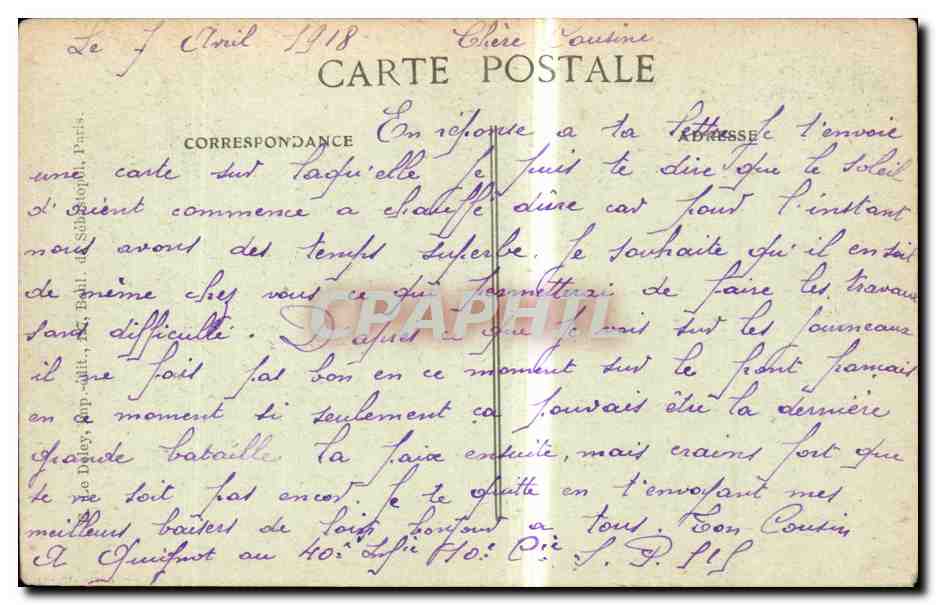 Le 7 Avril 1918 Chère Cousine
CARTE POSTALE
CORRESPONDANCE
ADRESSE
En réponse a ta lettre Je t'envoie
une carte sur laqu'elle Je puis te dire que le soleil
d'orient commence a chauffé dure car pour l'instant
nous avons des temps superbe. Je souhaite qu'il en soit
de même chez vous ce qui permetterai de faire les travaux
sans difficulté. D'après a que Je vois sur les Journeaux
il ne fais pas bon en ce moment sur le front français
en ce moment si seulement ça pouvais être la dernière
grande bataille la paix ensuite, mais crains fort que
se ne soit pas encor. Je te quitte en t'envoyant mes
meilleurs baisers de loin bonjour a tous. Ton Cousin
A Quignot au 40e Infie 10e Cie S. P. 515
Le Deley, Imp.-édit., 127, Bould. de Sébastopol, Paris.
CPAPHIL